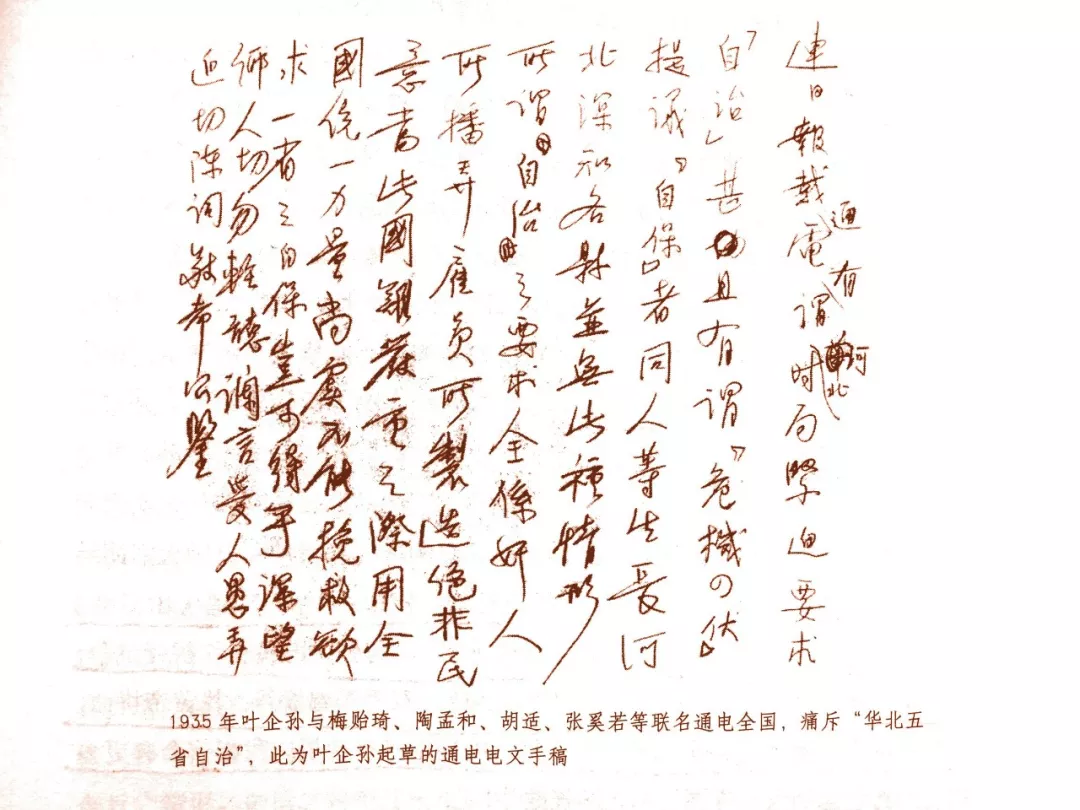 連日報載通電有謂河北時局緊迫要求
「自治」甚且有謂『危機四伏』
提議『自保』者同人等生長河
北深知各縣並無此種情形
所謂『自治』之要求全係奸人
所播弄雇員所製造絕非民
意當此國難嚴重之際用全
國統一力量尚虞不能挽救欲
求一省之自保豈可得乎深望
鄉人切勿輕聽讕言受人愚弄
迫切陳詞敬希公鑒
1935年叶企孙与梅贻琦、陶孟和、胡适、张奚若等联名通电全国，痛斥“华北五
省自治”，此为叶企孙起草的通电电文手稿